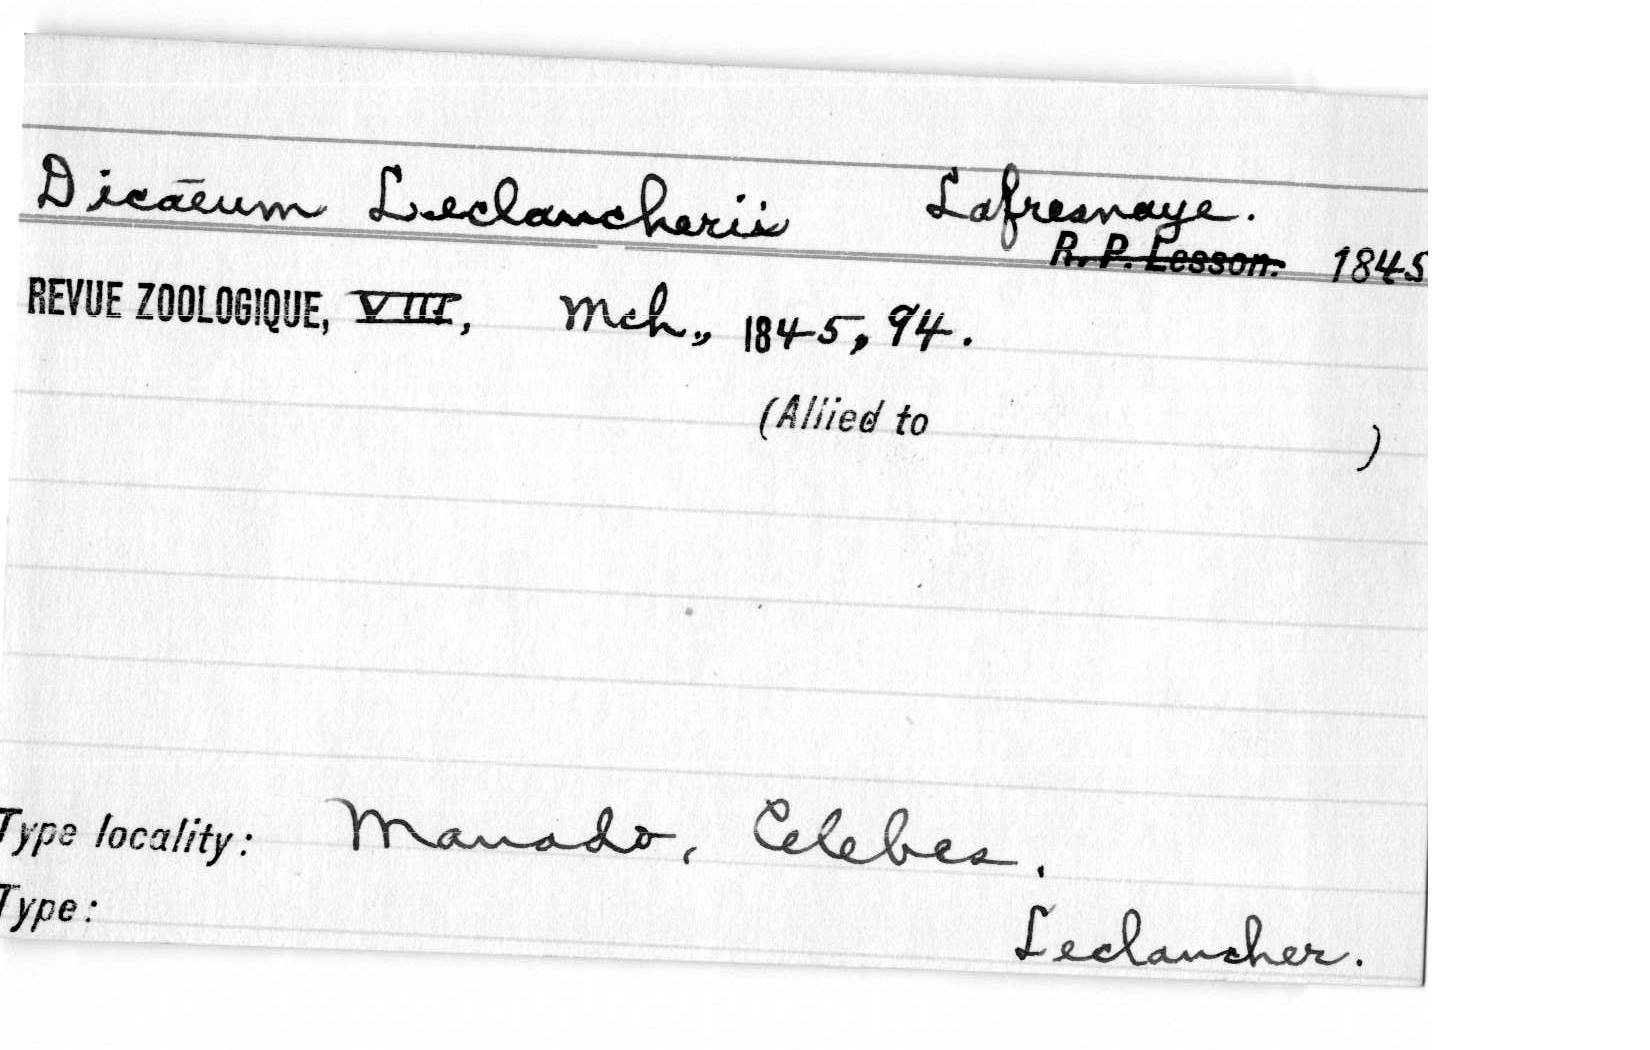 Dicāeum Leclancherii Lafresnaye.
R. P. Lesson. 1845
REVUE ZOOLOGIQUE, VIII, Mch., 1845, 94.
(Allied to )
Type locality: Manado, Celebes.
Type:
Leclancher.